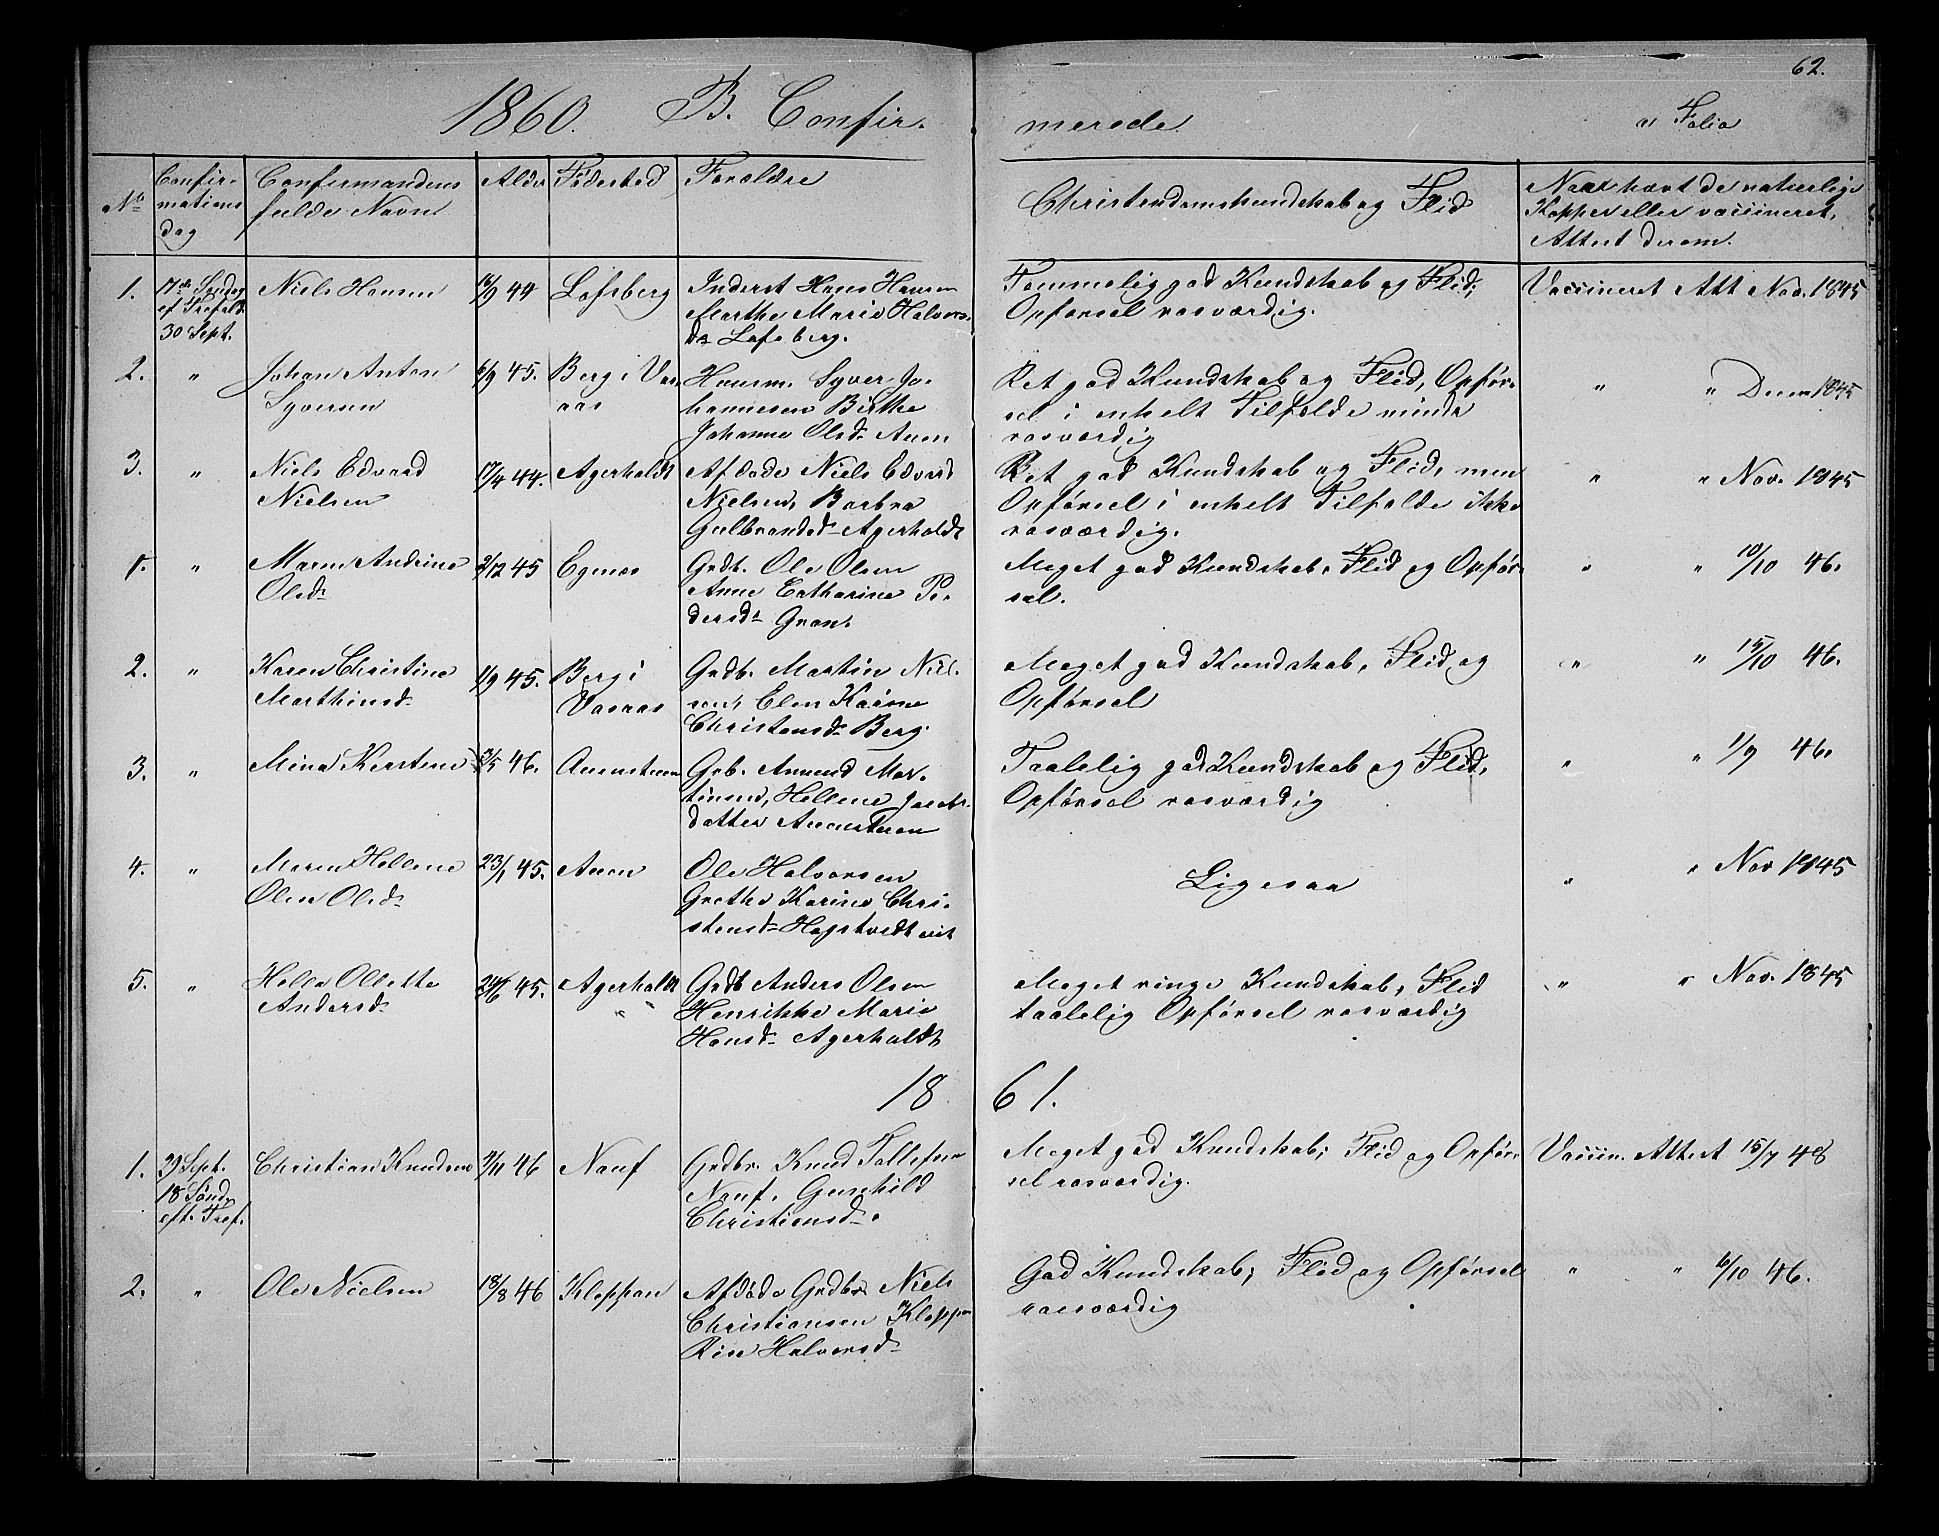 62.
1860. B. Confirmerede. " Folio
No
Confirmations dag
Confirmandens fulde Navn
Alder
Fødested
Forældre
Christendomskundskab og Flid
Naar havt de naturlige Kopper eller vaccineret, Attest derom.
1. 17de Søndag ef Trefold. 30 Sept. Niels Hansen 16/9 44 Lofsberg Inderst Hans Hansen Marthe Marie Halvorsdr Lofsberg. Temmelig god Kundskab og Flid; Opførsel rosværdig. Vaccineret Att Nov. 1845
2. " Johan Anton Syversen 6/9 45. Berg i Vasaas Huusm. Syver Johannesen Birthe Johanne Olsdr Auen Ret god Kundskab og Flid, Opførsel i enkelt Tilfælde mindre rosværdig " " Decem 1845
3. " Niels Edvard Nielsen 17/4 44. Agerholdt Afdøde Niels Edvard Nielsen, Barbra Gulbrandsd Agerholdt Ret god Kundskab og Flid, men Opførsel i enkelt Tilfælde ikke rosværdig. " " Nov. 1845
1. " Maren Andrine Olsdr 2/12 45 Egenes Grdb. Ole Olsen Anne Catharine Pedersdr Gran. Meget god Kundskab, Flid og Opførsel. " " 10/10 46.
2. " Karen Christine Marthinsdr 1/9 45. Berg i Vasaas Grdb. Martin Nielsen, Elen Karine Christensdr Berg. Meget god Kundskab, Flid og Opførsel " " 15/10 46.
3. " Mina Kirstine 3/5 46. Auenstuen Grb. Amund Martinsen, Hellene Jacobsdatter Auenstuen Taalelig god Kundskab og Flid, Opførsel rosværdig " " 1/9 46.
4. " Maren Hellene Oline Olsdr 23/1 45. Auen Ole Halvorsen Grethe Karine Christensdr Hagstvedt eiet Ligesaa " " Nov 1845
5. " Helle Ollette Andersdr 24/6 45. Agerholdt " Grdb Anders Olsen Henrikke Marie Hansdr Agerholdt Meget ringe Kundskab, Flid taalelig Opførsel rosværdig " " Nov. 1845
1861.
1. 29 Sept. 18 Sønd. eft. Tref. Christian Knudsen 7/11 46 Nauf Grdbr. Knud Tollefsen Nauf. Gunhild Christiansdr. Meget god Kundskab; Flid og Opførsel rosværdig. Vaccin. Attest 15/7 48
2. " Ole Nielsen 18/8 46 Kloppan Afdøde Grdbr Niels Christiansen Kloppan Rise Halvorsdr God Kundskab; Flid og Opførsel rosværdig " " 6/10 46.